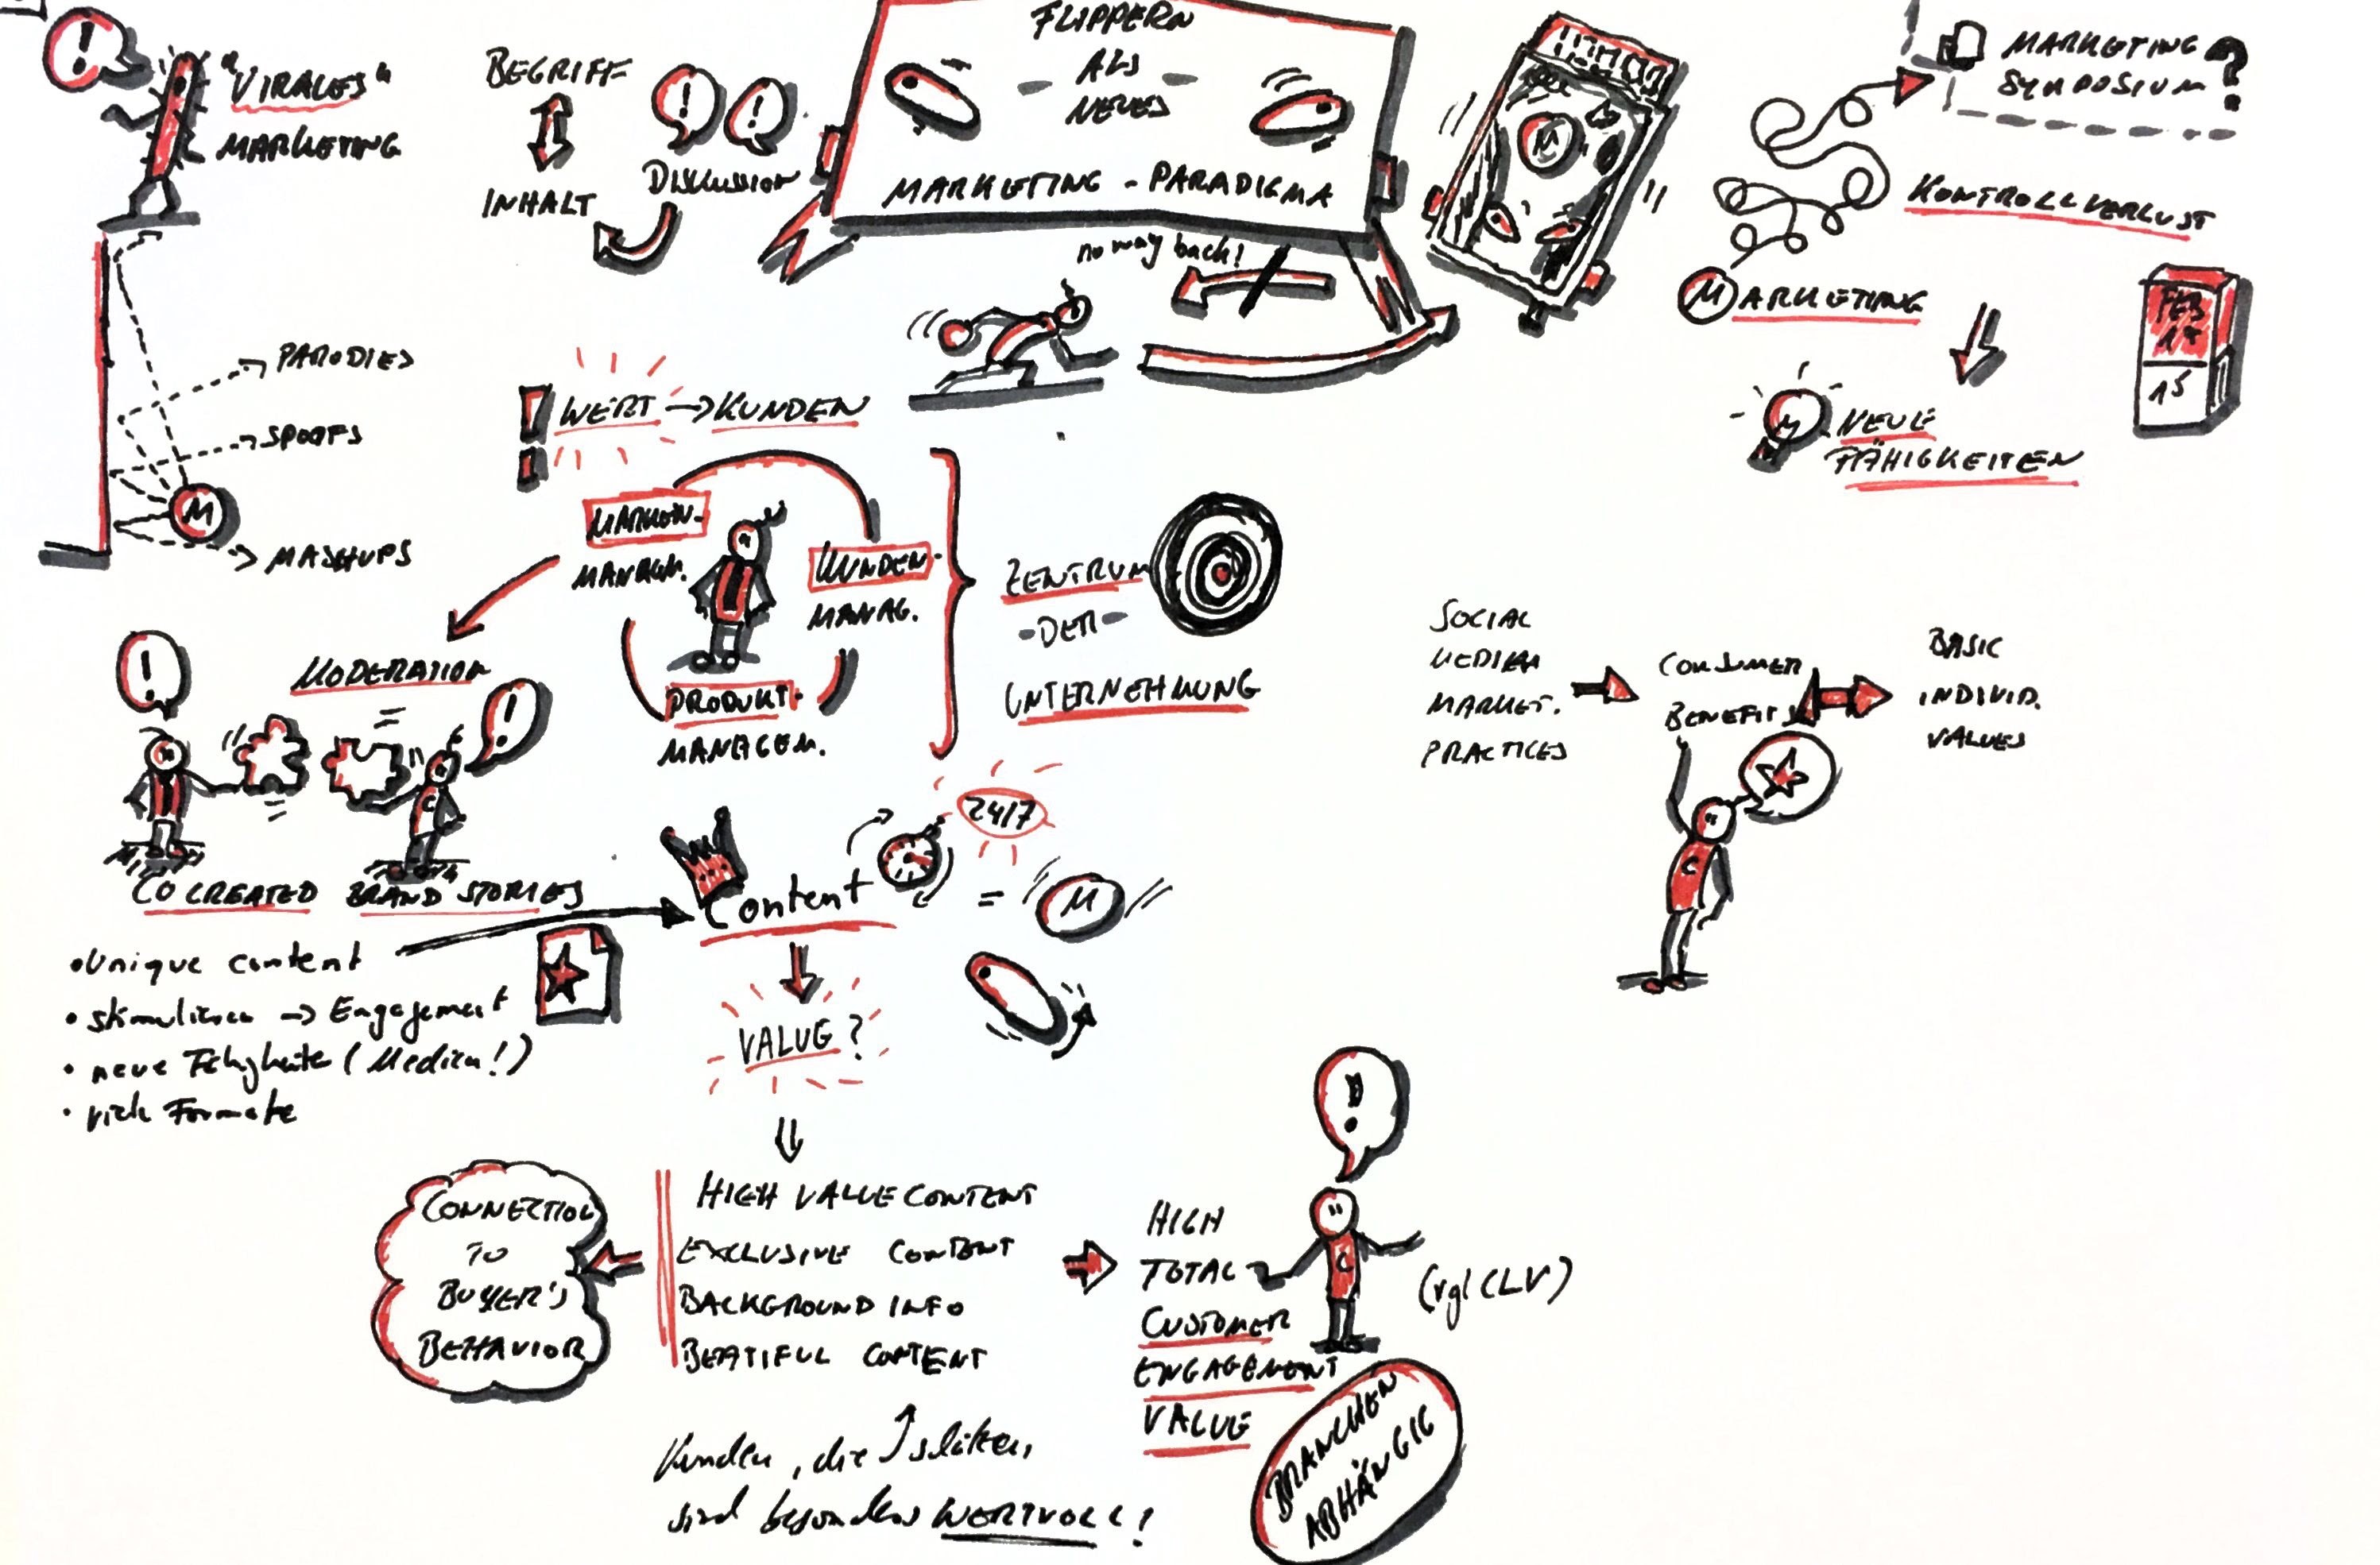 !
"VIRALES"
MARKETING
BEGRIFF
INHALT
! !
DISKUSSION
FLIPPERN
ALS
NEUES
MARKETING - PARADIGMA
no way back!
M
MARKETING
SYMPOSIUM ?
KONTROLLVERLUST
MARKETING
FEB
15
NEUE
FÄHIGKEITEN
PARODIES
SPOOFS
M
MASHUPS
! WERT → KUNDEN
MARKEN-
MANAGM.
KUNDEN-
MANAG.
PRODUKT-
MANAGEM.
ZENTRUM
- DER -
UNTERNEHMUNG
SOCIAL
MEDIA
MARKET.
PRACTICES
CONSUMER
BENEFITS
BASIC
INDIVID.
VALUES
C
!
MODERATION
!
C
CO CREATED BRAND STORIES
• Unique content
• stimulieren → Engagement
• neue Fähigkeite (Medien!)
• viele Formate
Content
24/7
= M
VALUE?
HIGH VALUE CONTENT
EXCLUSIVE CONTENT
BACKGROUND INFO
BEATIFUL CONTENT
CONNECTION
TO
BUYER'S
BEHAVIOR
HIGH
TOTAL
CUSTOMER
ENGAGEMENT
VALUE
!
C
(vgl CLV)
BRANCHEN
ABHÄNGIG
Kunden, die
sind besonders WERTVOLL!